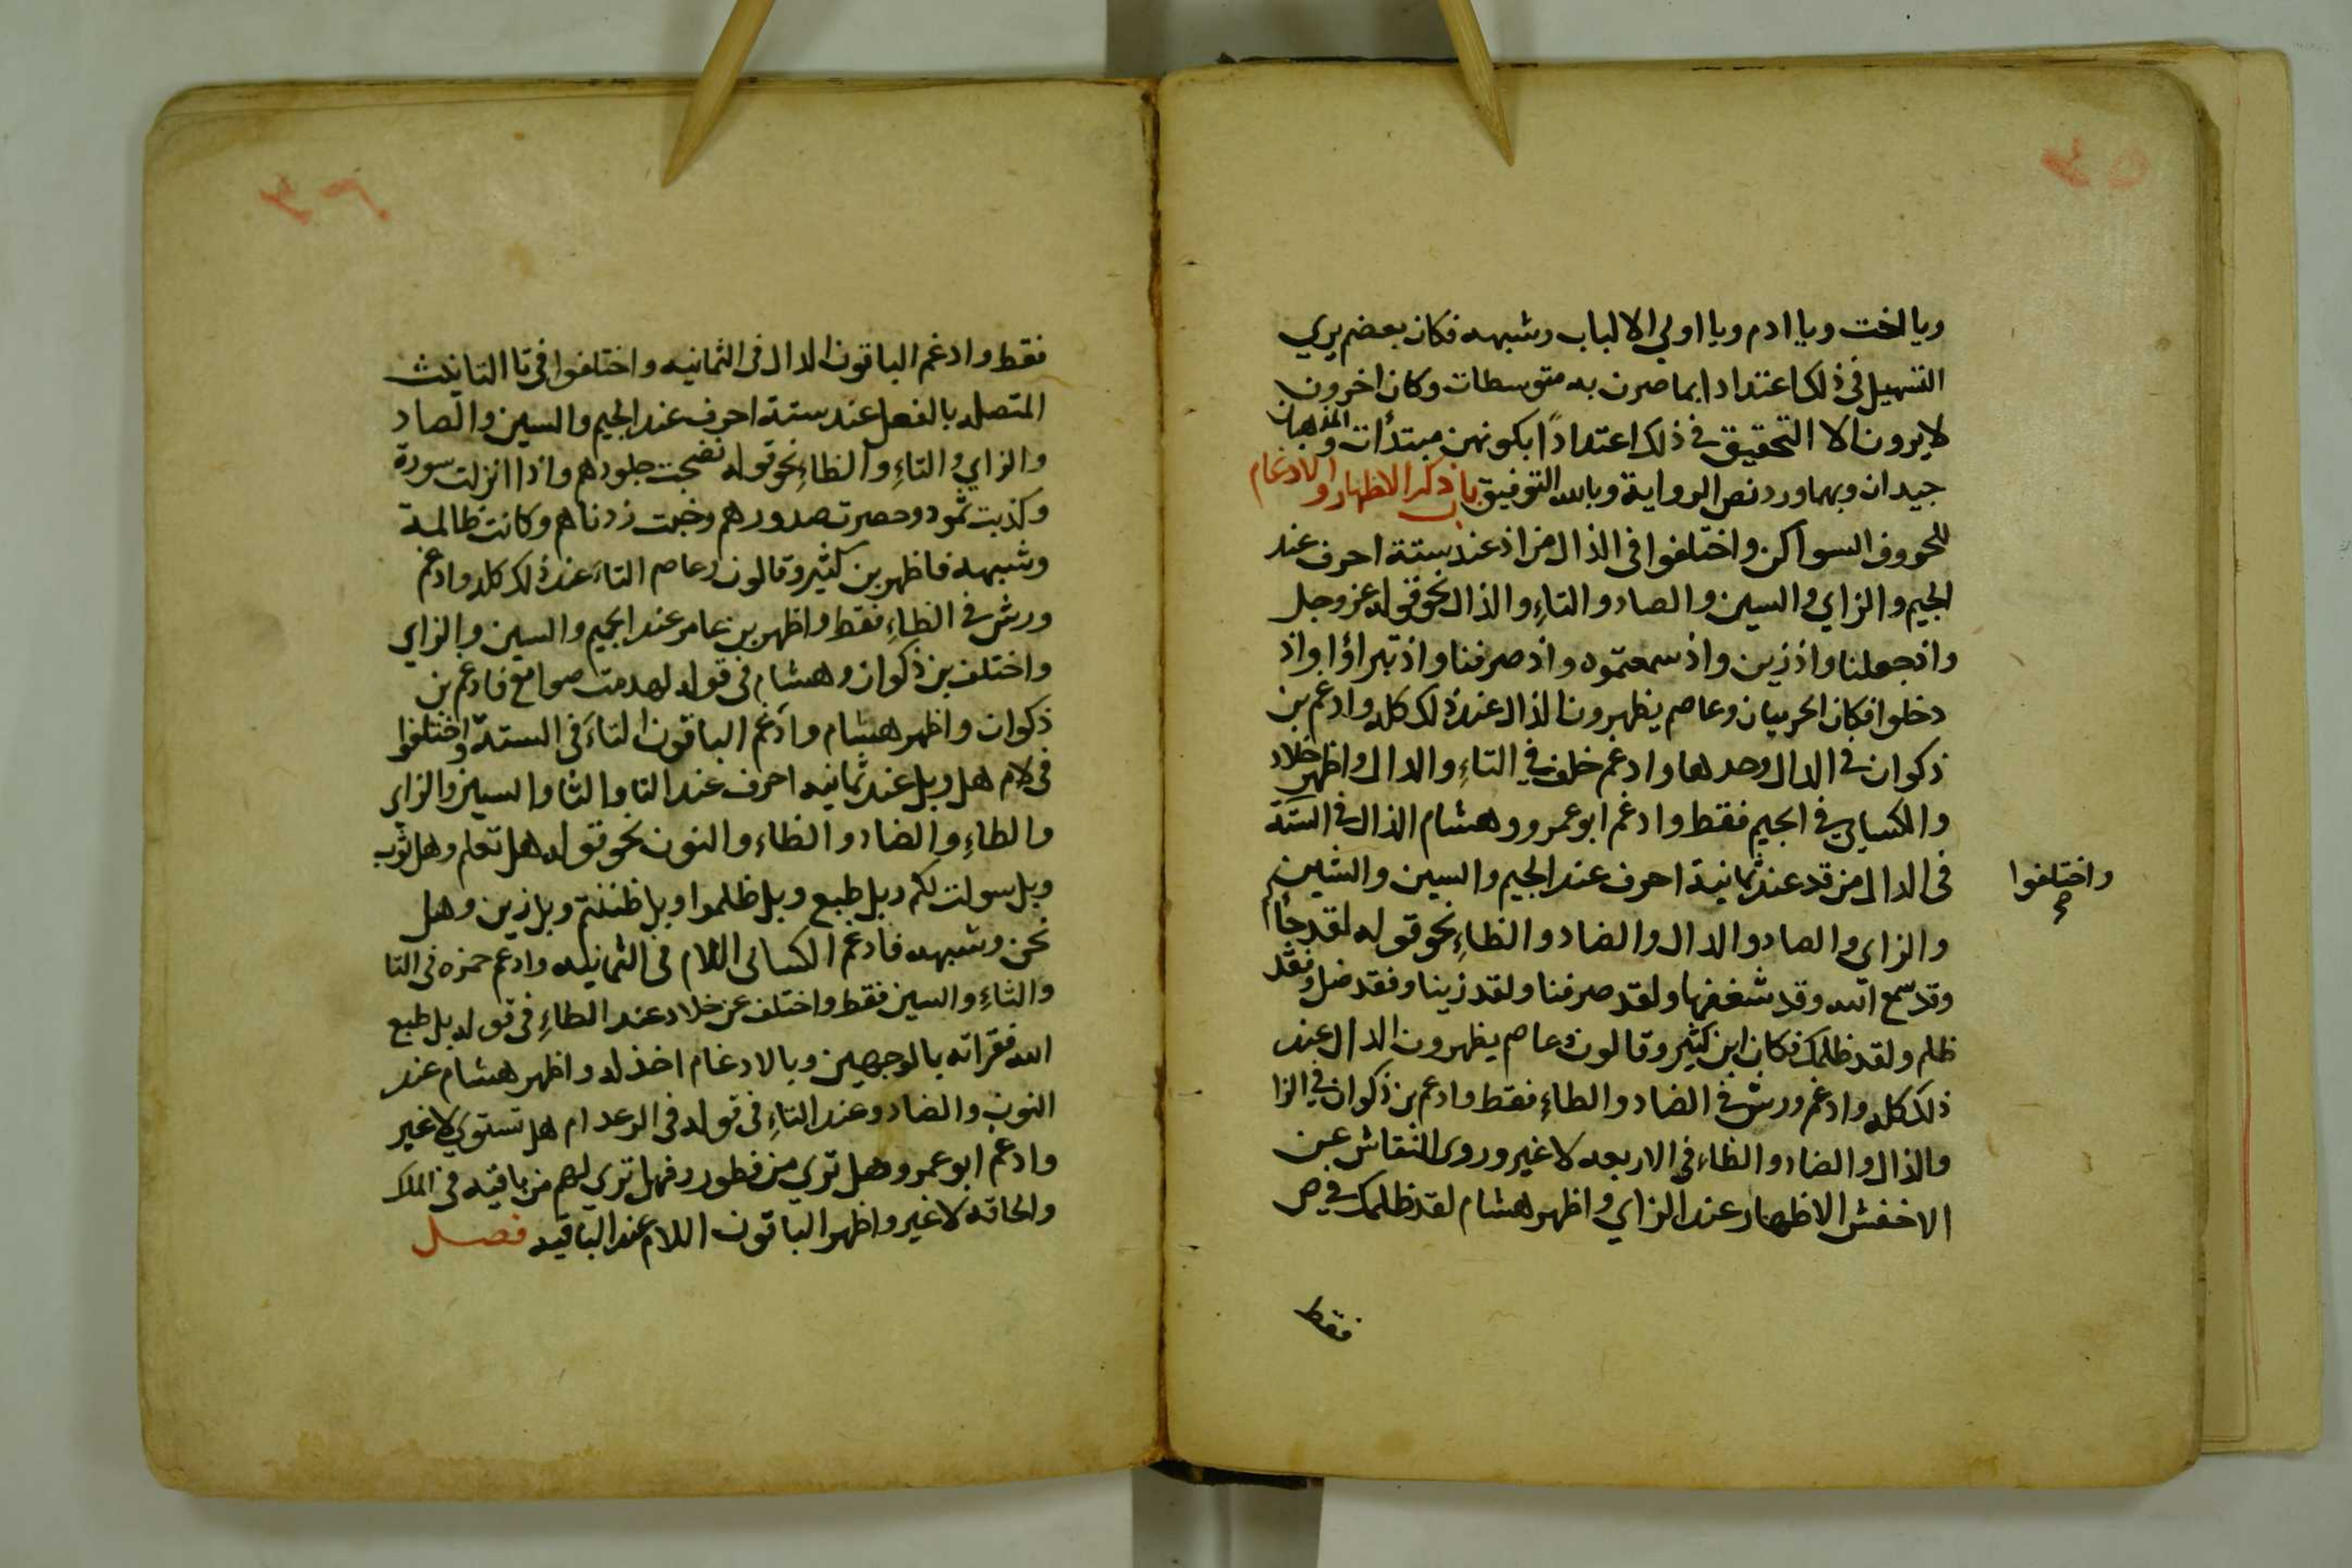 ويا اخت ويا ادم ويا اولي الالباب وشبهه فكان بعضهم يري
التسهيل في ذلك اعتدادا بما صرن به متوسطات وكان اخرون
لا يرون الا التحقيق في ذلك اعتدادًا بكونهن مبتدأت والمذهبان
جيدان وبهما ورد نص الرواية وبالله التوفيق باب ذكر الاظهار والادغام
للحروف السواكن واختلفوا في الذال من اذ عند ستة احرف عند
الجيم والزاي والسين والصاد والتاءِ والدال نحو قوله عز وجل
واذ جعلنا واذ زين واذ سمعتموه واذ صرفنا واذ تبراؤا واذ
دخلوا فكان الحرميان وعاصم يظهرون الذال عند ذلك كله وادغم بن
ذكوان في الدال وحدها وادغم خلف في التاءِ والدال واظهر خلاد
والكسايي في الجيم فقط وادغم ابو عمرو وهشام الذال في الستة
واختلفوا صح
في الدال من قد عند ثمانية احرف عند الجيم والسين والشين
والزاى والصاد والذال والضاد والظاءِ نحو قوله لقد جأكم
وقد سمع الله وقد شغفها ولقد صرفنا ولقد زينا وفقد ضل وفقد
ظلم ولقد ظلمك فكان ابن كثير وقالون وعاصم يظهرون الدال عند
ذلك كله وادغم ورش في الضاد والظاءِ فقط وادغم بن ذكوان في الزا
والذال والضاد والظاء في الاربعه لا غير وروى النقاش عن
الاخفش الاظهار عند الزاي واظهر هشام لقد ظلمك في ص
فقط
فقط وادغم الباقون الدال في الثمانيه واختلفوا في تا التانيث
المتصله بالفعل عند ستة احرف عند الجيم والسين والصاد
والزاي والثاءِ والظاءِ نحو قوله نضجت جلودهم واذا انزلت سورة
وكذبت ثمود وحصرت صدورهم وخبت زدناهم وكانت ظالمة
وشبهه فاظهر بن كثير وقالون وعاصم التاء عند ذلك كله وادغم
ورش في الظاءِ فقط واظهر بن عامر عند الجيم والسين والزاي
واختلف بن ذكوان وهشام في قوله لهدمت صوامع فادغم بن
ذكوان واظهر هشام وادغم الباقون التاء في الستة واختلفوا
في لام هل وبل عند ثمانيه احرف عند التا والثا والسين والزاي
والطاءِ والضاد والظاء والنون نحو قوله هل تعلم وهل ثوب
وبل سولت لكم وبل طبع وبل ظلموا وبل ظننتم وبل زين وهل
نحن وشبهه فادغم الكسائى اللام في الثمانيه وادغم حمزه في التا
والثاءِ والسين فقط واختلف عن خلاد عند الطاءِ في قوله بل طبع
الله فقراته بالوجهين وبالادغام اخذ له واظهر هشام عند
النون والضاد وعند التاءِ في قوله في الرعد ام هل تستوي لا غير
وادغم ابو عمرو هل تري من فطور وفهل تري لهم من باقيه في الملك
والحاقه لا غير واظهر الباقون اللام عند الباقيه فصل